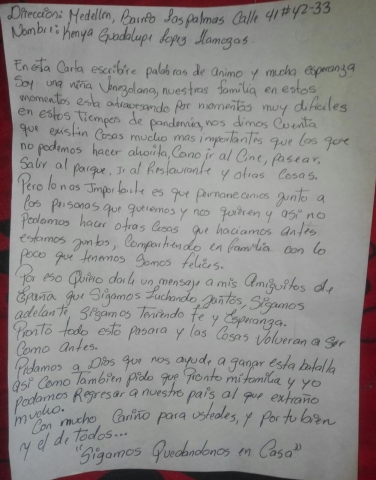 Dirección: Medellin, Barrio Las palmas Calle 41#42-33
Nombre: Kenya Guadalupe Lopez Llamozas.
En esta Carta escribire palabras de animo y mucha esperanza
Soy una niña Venezolana, nuestras familia en estos
momentos esta atravesando por momentos muy dificiles
en estos tiempos de pandemia, nos dimos Cuenta
que existen Cosas mucho mas importantes que las que
no podemos hacer ahorita, Como ir al Cine, pasear,
Salir al parque, Ir al Restaurante y otras Cosas.
Pero lo mas Importante es que permanecemos junto a
las personas que queremos y nos quieren y asi no
Podamos hacer otras Cosas que haciamos antes.
estamos juntos, Compartiendo en familia con lo
poco que tenemos Somos felices.
Por eso Quiero darle un mensaje a mis Amiguitos de
España que Sigamos luchando, Juntos, Sigamos
adelante, Sigamos Teniendo fe y Esperanza.
Pronto todo esto pasara y las Cosas Volveran a Ser
Como antes.
Pidamos a Dios que nos ayude a ganar esta batalla
asi Como Tambien pido que Pronto mi familia y yo
podamos Regresar a nuestro pais al que extraño
mucho.
Con mucho Cariño para ustedes, y por tu bien
y el de Todos...
"Sigamos Quedandonos en Casa"